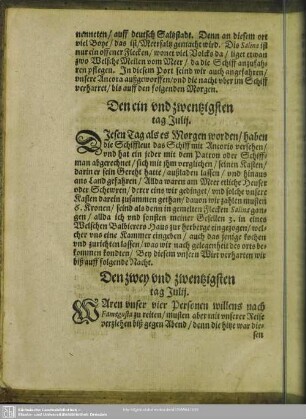 nenneten / auff deutsch Saltstadt. Denn an diesem ort
viel Boye / das ist / Meersaltz gemacht wird. Dis Salina ist
nur ein offener Flecken / wonet viel Volcks da / liget etwan
zwo Welsche Meilen vom Meer / da die Schiff anzufah-
ren pflegen. In diesem Port seind wir auch angefahren /
unsere Ancora außgeworffen / und die nacht uber im Schiff
verharret / bis auff den folgenden Morgen.
Den ein vnd zwentzigsten
tag Julij.
DIesen Tag als es Morgen worden / haben
die Schiffleut das Schiff mit Ancoris versehen /
und hat ein jeder mit dem Patron oder Schiff-
man abgerechnet / sich mit ihm verglichen / seinen Kasten /
darin er sein Gereht hatte / außladen lassen / und hinaus
ans Land gefahren / Allda waren am Meer etliche Heuser
oder Schewren / derer eins wir gedinget / und solche unsere
Kasten darein zusammen gethan / davon wir zahlen musten
6. Kronen / seind als denn in gemelten Flecken Salina gegan-
gen / allda ich und sonsten meiner Gesellen 3. in eines
Welschen Balbierers Haus zur herberge eingezogen / wel-
cher uns eine Kammer eingeben / auch das jenige kochen
und zurichten lassen / was wir nach gelegenheit des orts be-
kommen konten / Bey diesem unsern Wirt verharten wir
biß auff folgende Nacht.
Den zwey vnd zwentzigsten
tag Julij.
WAren unser vier Personen willens nach
Famagusta zu reiten / musten aber mit unserer Reise
verziehen biß gegen Abend / denn die hitze war die-
sen